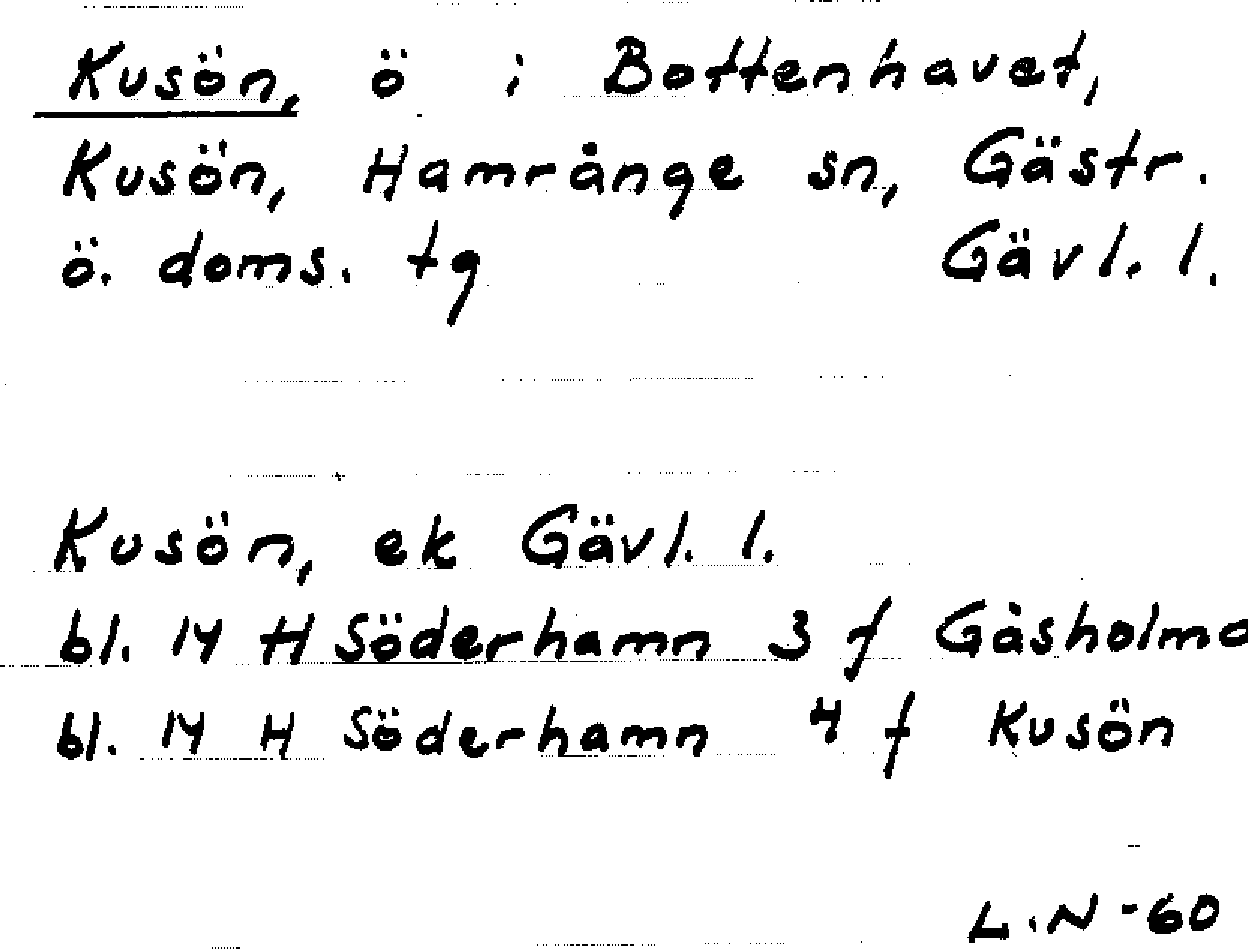 Kusön, ö i Bottenhavet,
Kusön, Hamrånge sn, Gästr.
ö. doms. tg Gävl. l.
Kusön, ek Gävl. l.
bl. 14 H Söderhamn 3 f Gåsholma
bl. 14 H Söderhamn 4 f Kusön
L.N-60